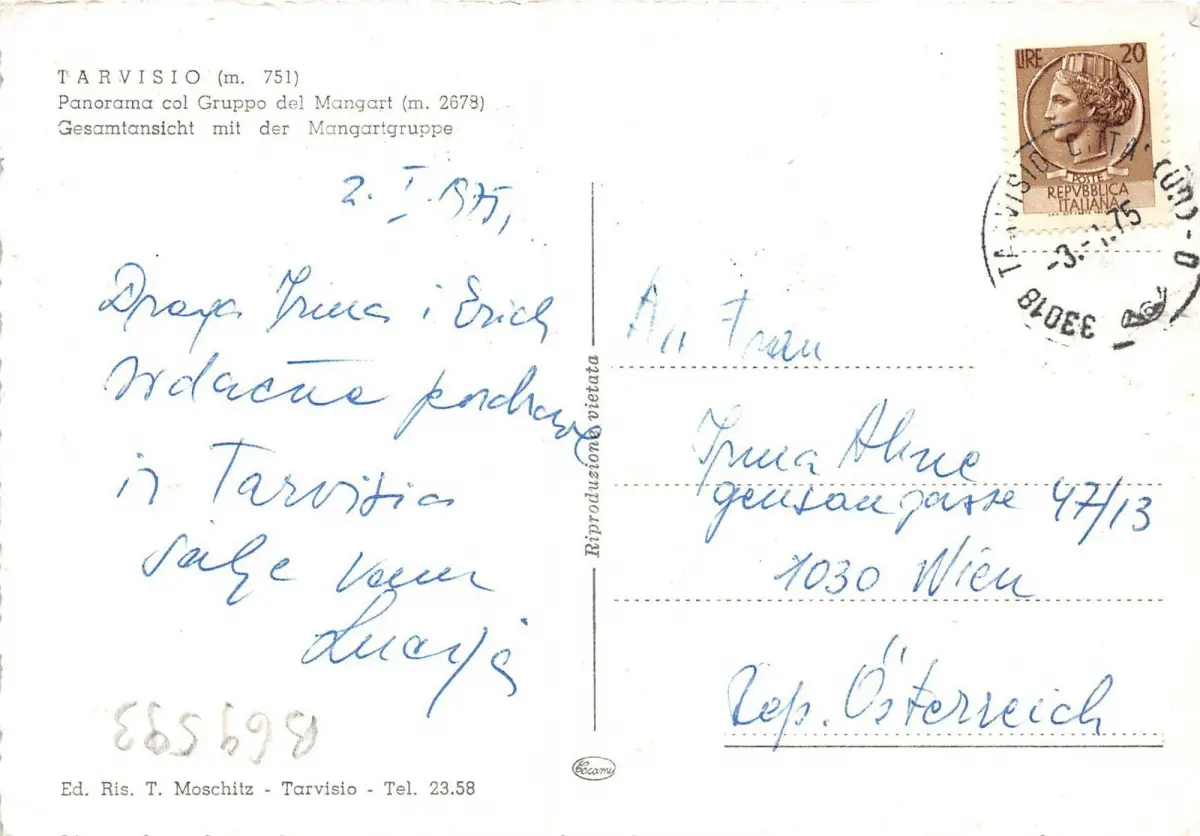 TARVISIO (m. 751)
Panorama col Gruppo del Mangart (m. 2678)
Gesamtansicht mit der Mangartgruppe
2. I. 1975,
Draga Irma i Erich
srdačne pozdrave
iz Tarvisia
šalje vam
Lucija
Ed. Ris. T. Moschitz - Tarvisio - Tel. 23.58
Riproduzione vietata
Cecami
LIRE 20
POSTE
REPVBBLICA
ITALIANA
TARVISIO CITTA'
-3.-1.75
33018
An Frau
Irma Ahne
gensaugasse 47/13
1030 Wien
Rep. Österreich